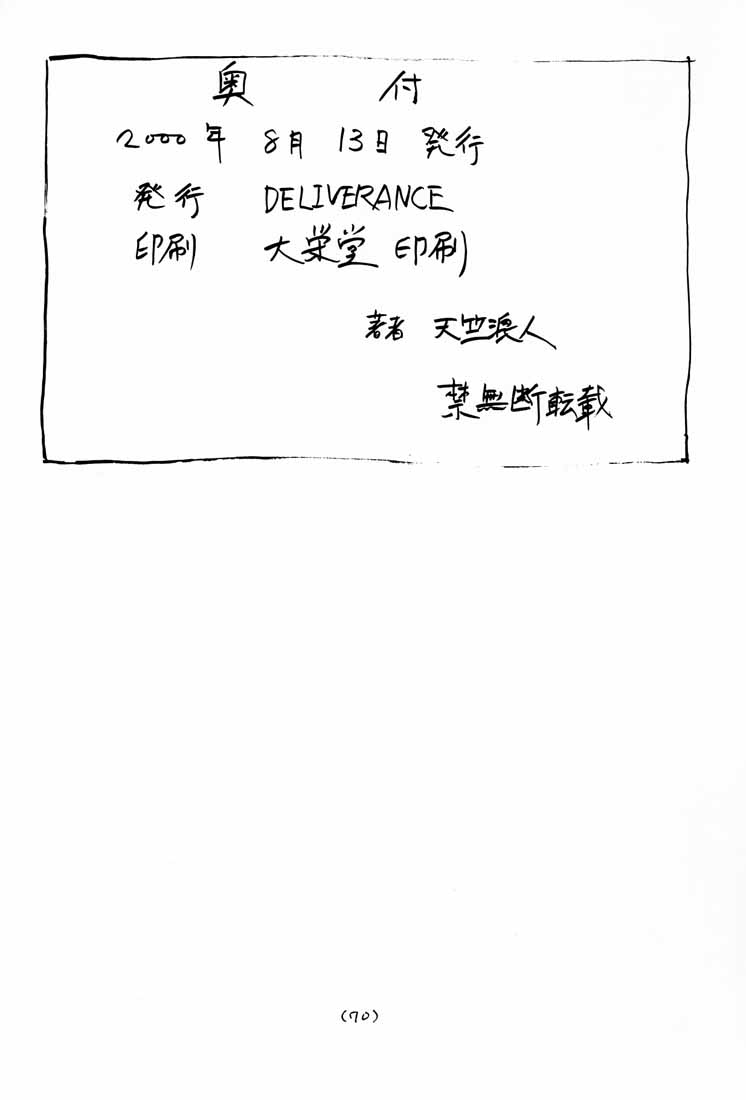 奥付
2000年 8月 13日 発行
発行 DELIVERANCE
印刷 大栄堂 印刷
著者 天竺浪人
禁無断転載
(70)